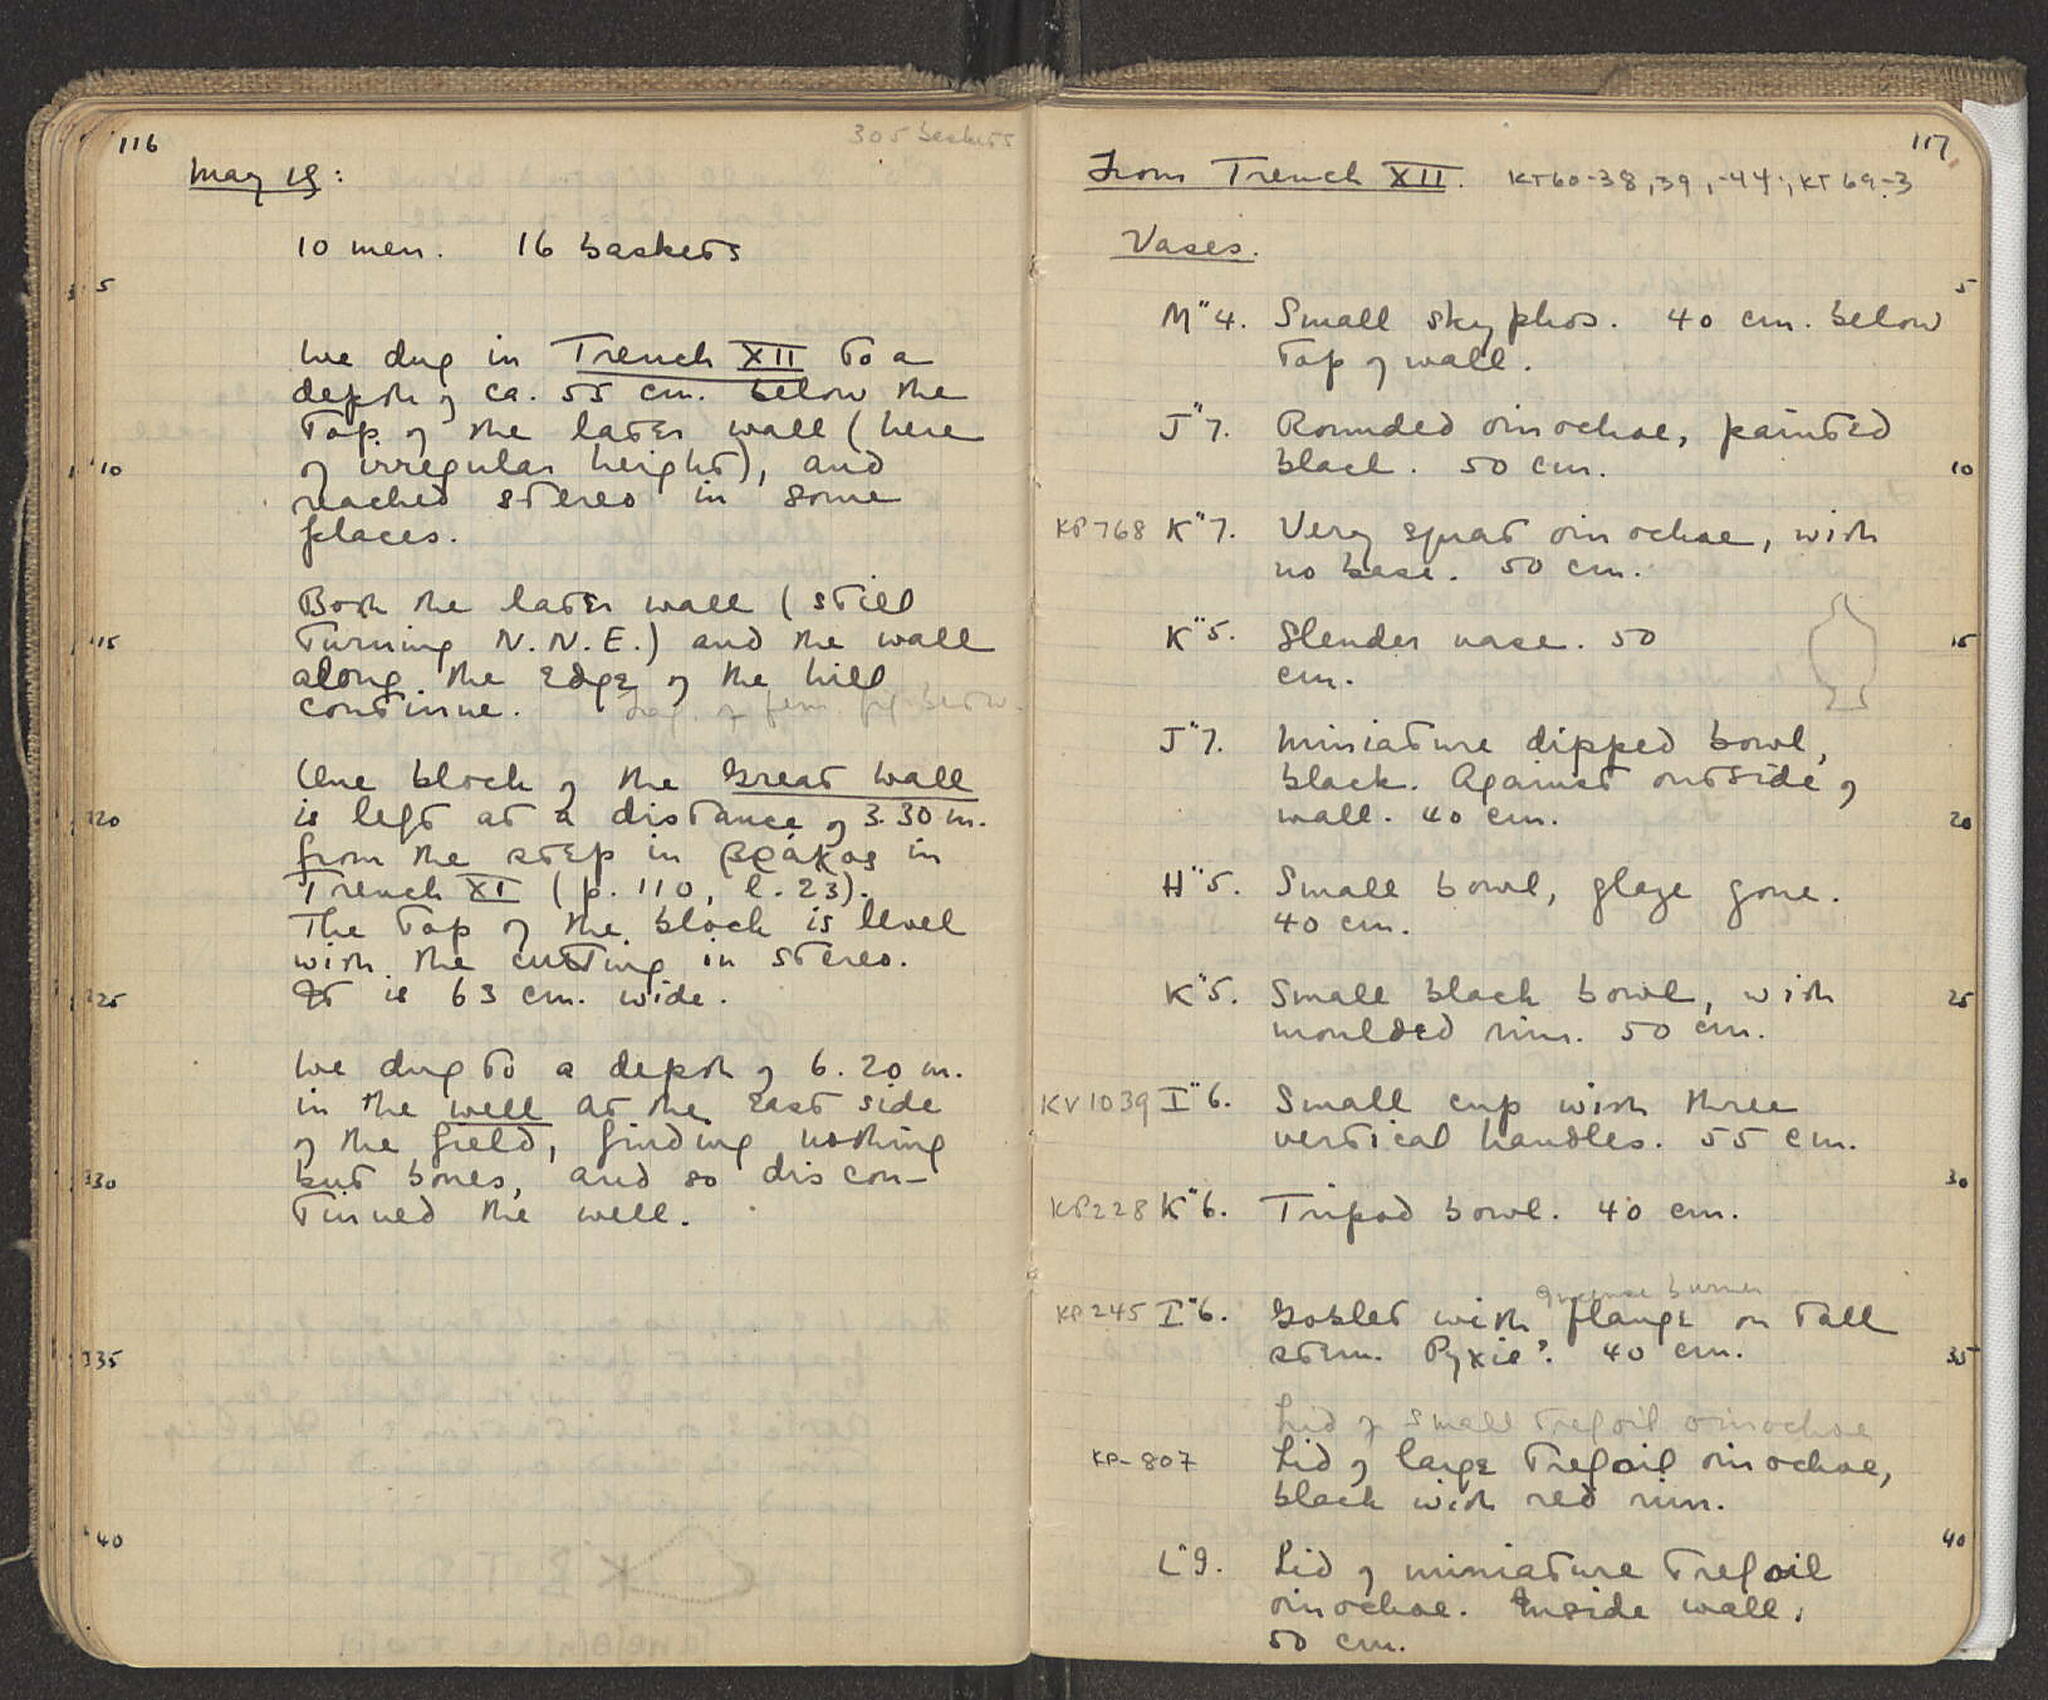 116
305 baskets
May 19:
10 men. 16 baskets
5
We dug in Trench XII to a
depth of ca. 55 cm. below the
top of the later wall (here
of irregular height), and
10
reached stereo in some
places.
Both the later wall (still
turning N.N.E.) and the wall
15
along the edge of the hill
continue. frag. of fem. fig. betw.
One block of the Great Wall
is left at a distance of 3.30 m.
20
from the step in βράχος in
Trench XI (p. 110, l. 23).
The top of the block is level
with the cutting in stereo.
It is 63 cm. wide.
25
We dug to a depth of 6.20 m.
in the well at the east side
of the field, finding nothing
but bones, and so discon-
30
tinued the well.
35
40
117
From Trench XII. KT60-38, 39, -44; KT 69-3
Vases.
5
M"4. Small skyphos. 40 cm. below
top of wall.
J"7. Rounded oinochoe, painted
black. 50 cm.
10
KP768 K"7. Very squat oinochoe, with
no base. 50 cm.
K"5. Slender vase. 50
15
cm.
J"7. Miniature dipped bowl,
black. Against outside of
wall. 40 cm.
20
H"5. Small bowl, glaze gone.
40 cm.
K"5. Small black bowl, with
25
moulded rim. 50 cm.
KV1039 I"6. Small cup with three
vertical handles. 55 cm.
30
KP228 K"6. Tripod bowl. 40 cm.
incense burner
KP245 I"6. Goblet with flange on tall
stem. Pyxis? 40 cm.
35
Lid of small trefoil oinochoe
KP-807 Lid of large trefoil oinochoe,
black with red rim.
40
L"9. Lid of miniature trefoil
oinochoe. Inside wall.
50 cm.